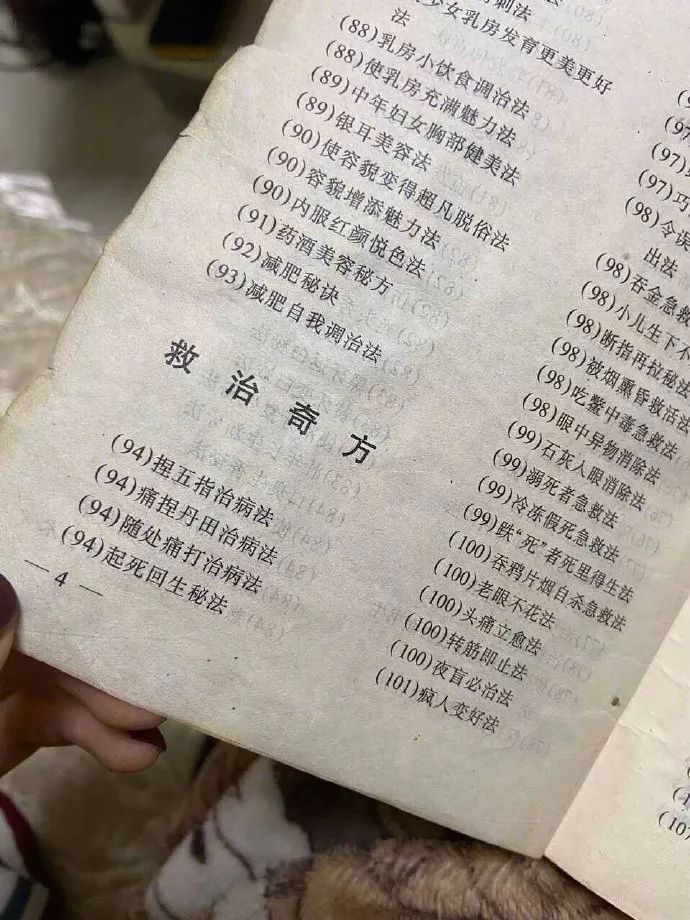 刺法
少女乳房发育更美更好
法
(88)乳房小饮食调治法
(88)使乳房充满魅力法
(89)中年妇女胸部健美法
(89)银耳美容法
(90)使容貌变得超凡脱俗法
(90)容貌增添魅力法
(90)内服红颜悦色法
(91)药酒美容秘方
(92)减肥秘诀
(93)减肥自我调治法
救治奇方
(94)捏五指治病法
(94)痛捏丹田治病法
(94)随处痛打治病法
(94)起死回生秘法
— 4 —
(97)
(97)巧
(98)令误
出法
(98)吞金急救
(98)小儿生下不
(98)断指再拉秘法
(98)被烟熏昏救活法
(98)吃鳖中毒急救法
(98)眼中异物消除法
(99)石灰入眼消除法
(99)溺死者急救法
(99)冷冻假死急救法
(99)跌“死”者死里得生法
(100)吞鸦片烟自杀急救法
(100)老眼不花法
(100)头痛立愈法
(100)转筋即止法
(100)夜盲必治法
(101)疯人变好法